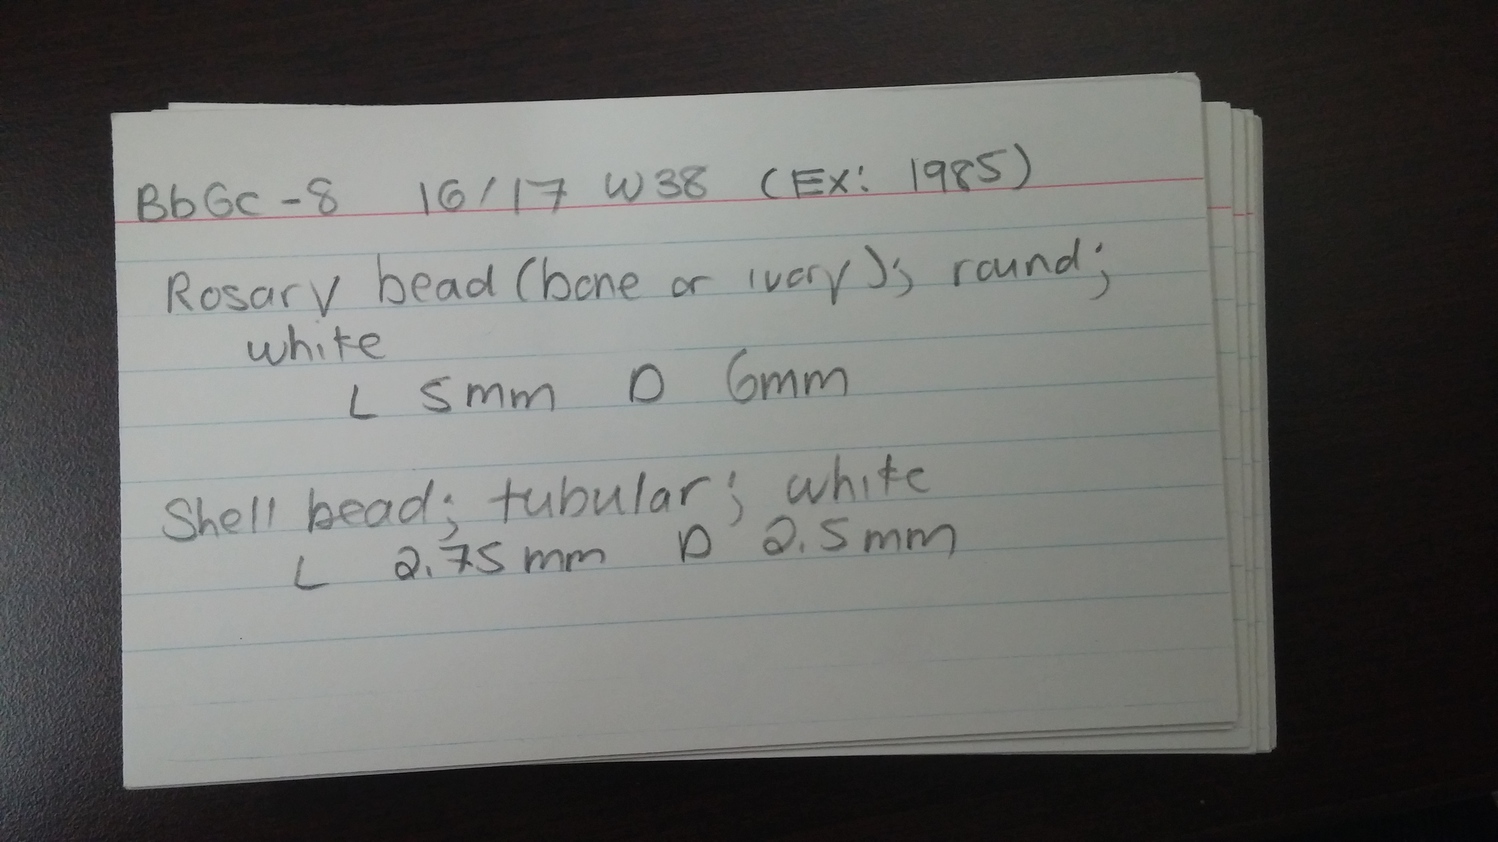 BbGc-8 16/17 W38 (Ex: 1985)
Rosary bead (bone or ivory); round;
white
L 5mm D 6mm
Shell bead; tubular; white
L 2.75mm D 2.5mm